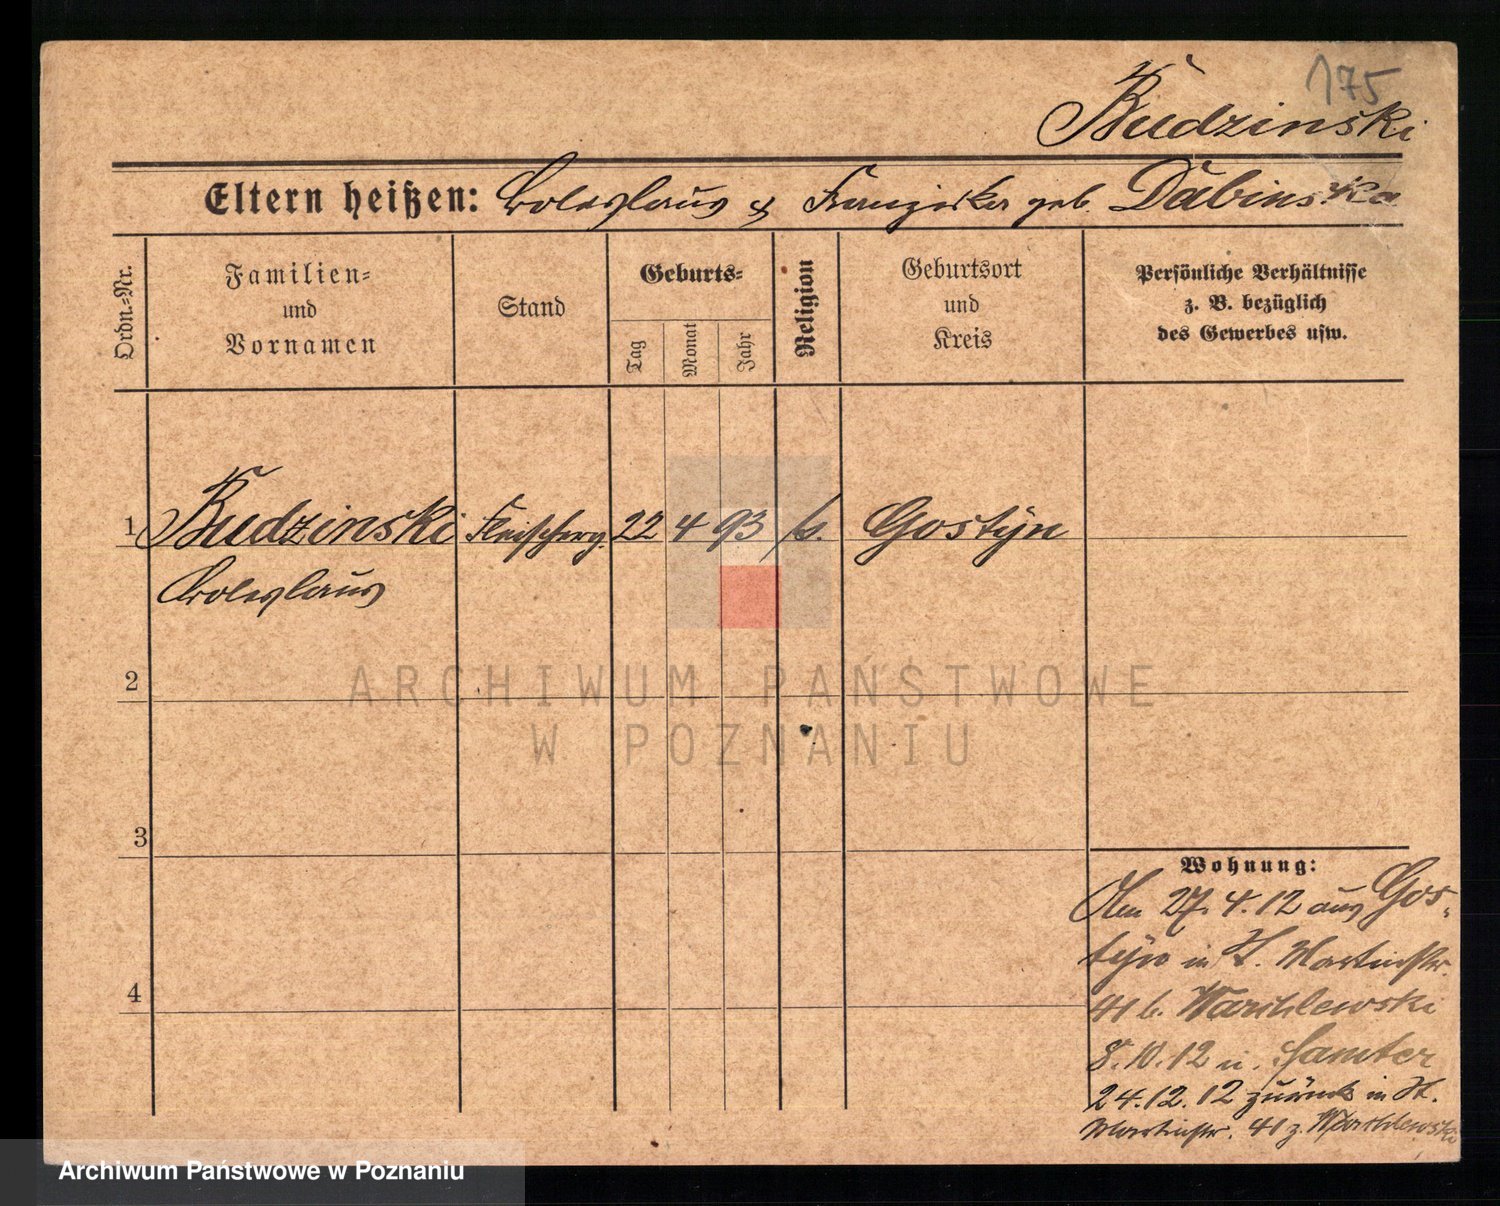 175
Budzinski
Eltern heißen: Boleslaus & Franziska geb. Dabinska
Ordn.-Nr.
Familien-
und
Vornamen
Stand
Geburts-
Tag
Monat
Jahr
Religion
Geburtsort
und
Kreis
Persönliche Verhältnisse
z. B. bezüglich
des Gewerbes usw.
1 Budzinski Fleischerg. 22 4 93 k. Gostyn
Boleslaus
2
ARCHIWUM PAŃSTWOWE
W POZNANIU
3
Wohnung:
Am 27.4.12 aus Gos-
tyn in St. Martinstr.
41 b.
4
8.10.12 n. Samter
24.12.12 zurück in St.
Martinstr. 41 z.
Archiwum Państwowe w Poznaniu